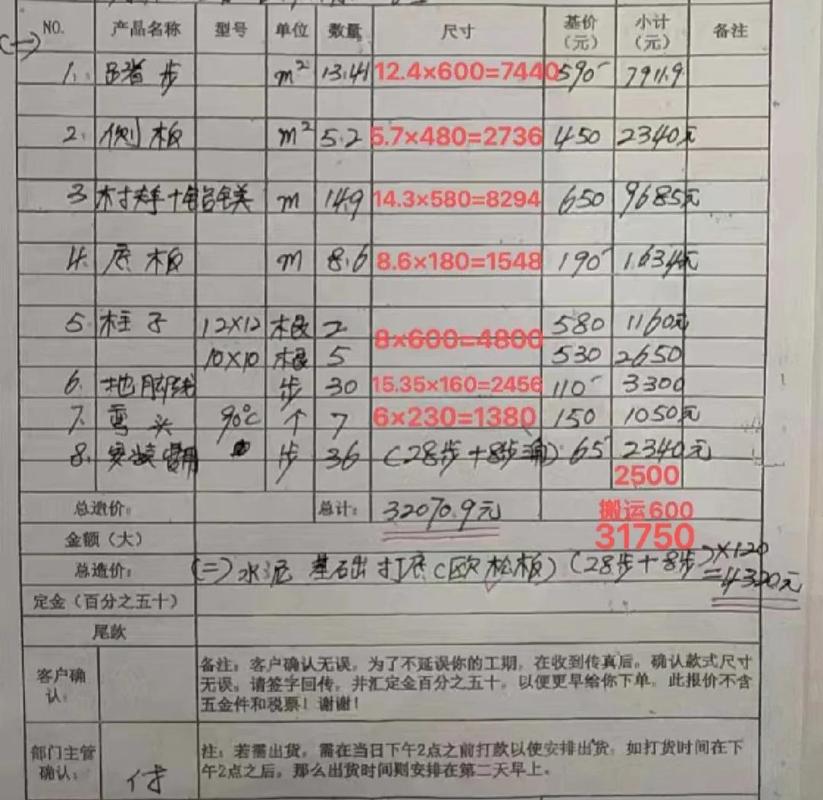 NO. 产品名称 型号 单位 数量 尺寸 基价（元） 小计（元） 备注
(一)
1. 踏步 m² 13.41 12.4×600=7440 590 7911.9
2. 侧板 m² 5.2 5.7×480=2736 450 2340元
3 扶手+铝镁 m 14.9 14.3×580=8294 650 9685元
4. 底板 m 8.6 8.6×180=1548 190 1634元
5. 柱子 12×12 根 2 8×600=4800 580 1160元
10×10 根 5 530 2650
6. 地脚线 步 30 15.35×160=2456 110 3300
7. 弯头 90℃ 个 7 6×230=1380 150 1050元
8. 安装费用 步 36 (28步+8步) 65 2340元
2500
总造价： 总计： 32070.9元 搬运600
金额（大） 31750
总造价： (二) 水泥基础打底(欧松板) (28步+8步)×120
=4320元
定金（百分之五十）
尾款
客户确认： 备注：客户确认无误，为了不延误你的工期，在收到传真后，确认款式尺寸
无误，请签字回传，并汇定金百分之五十，以便更早给你下单，此报价不含
五金件和税票！谢谢！
部门主管确认： 付 注：若需出货，需在当日下午2点之前打款以使安排出货，如打货时间在下
午2点之后，那么出货时间则安排在第二天早上。